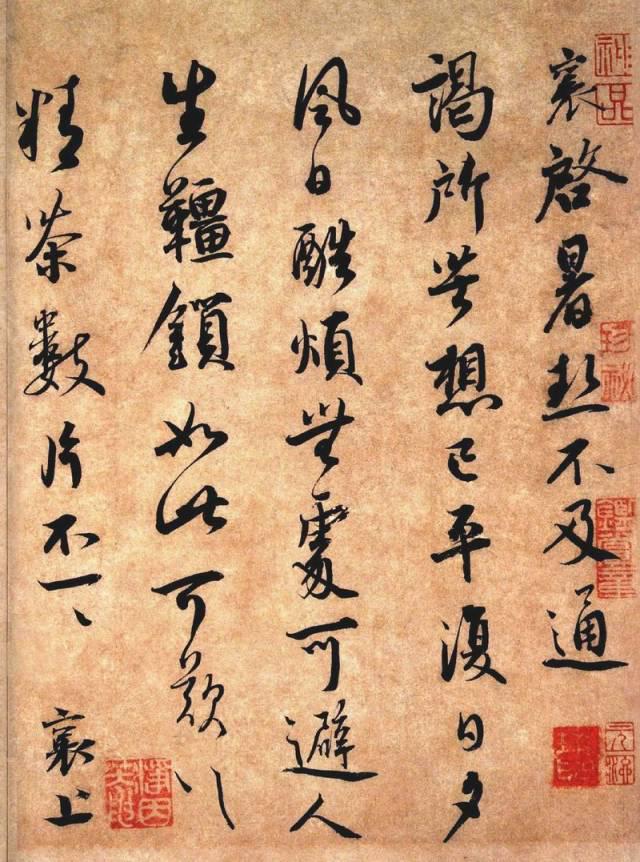 襄啓暑熱不及通
謁所苦想已平復日夕
風日酷煩無處可避人
生韁鎖如此可歎〻
精茶數片不一〻 襄上
神品
珍祕